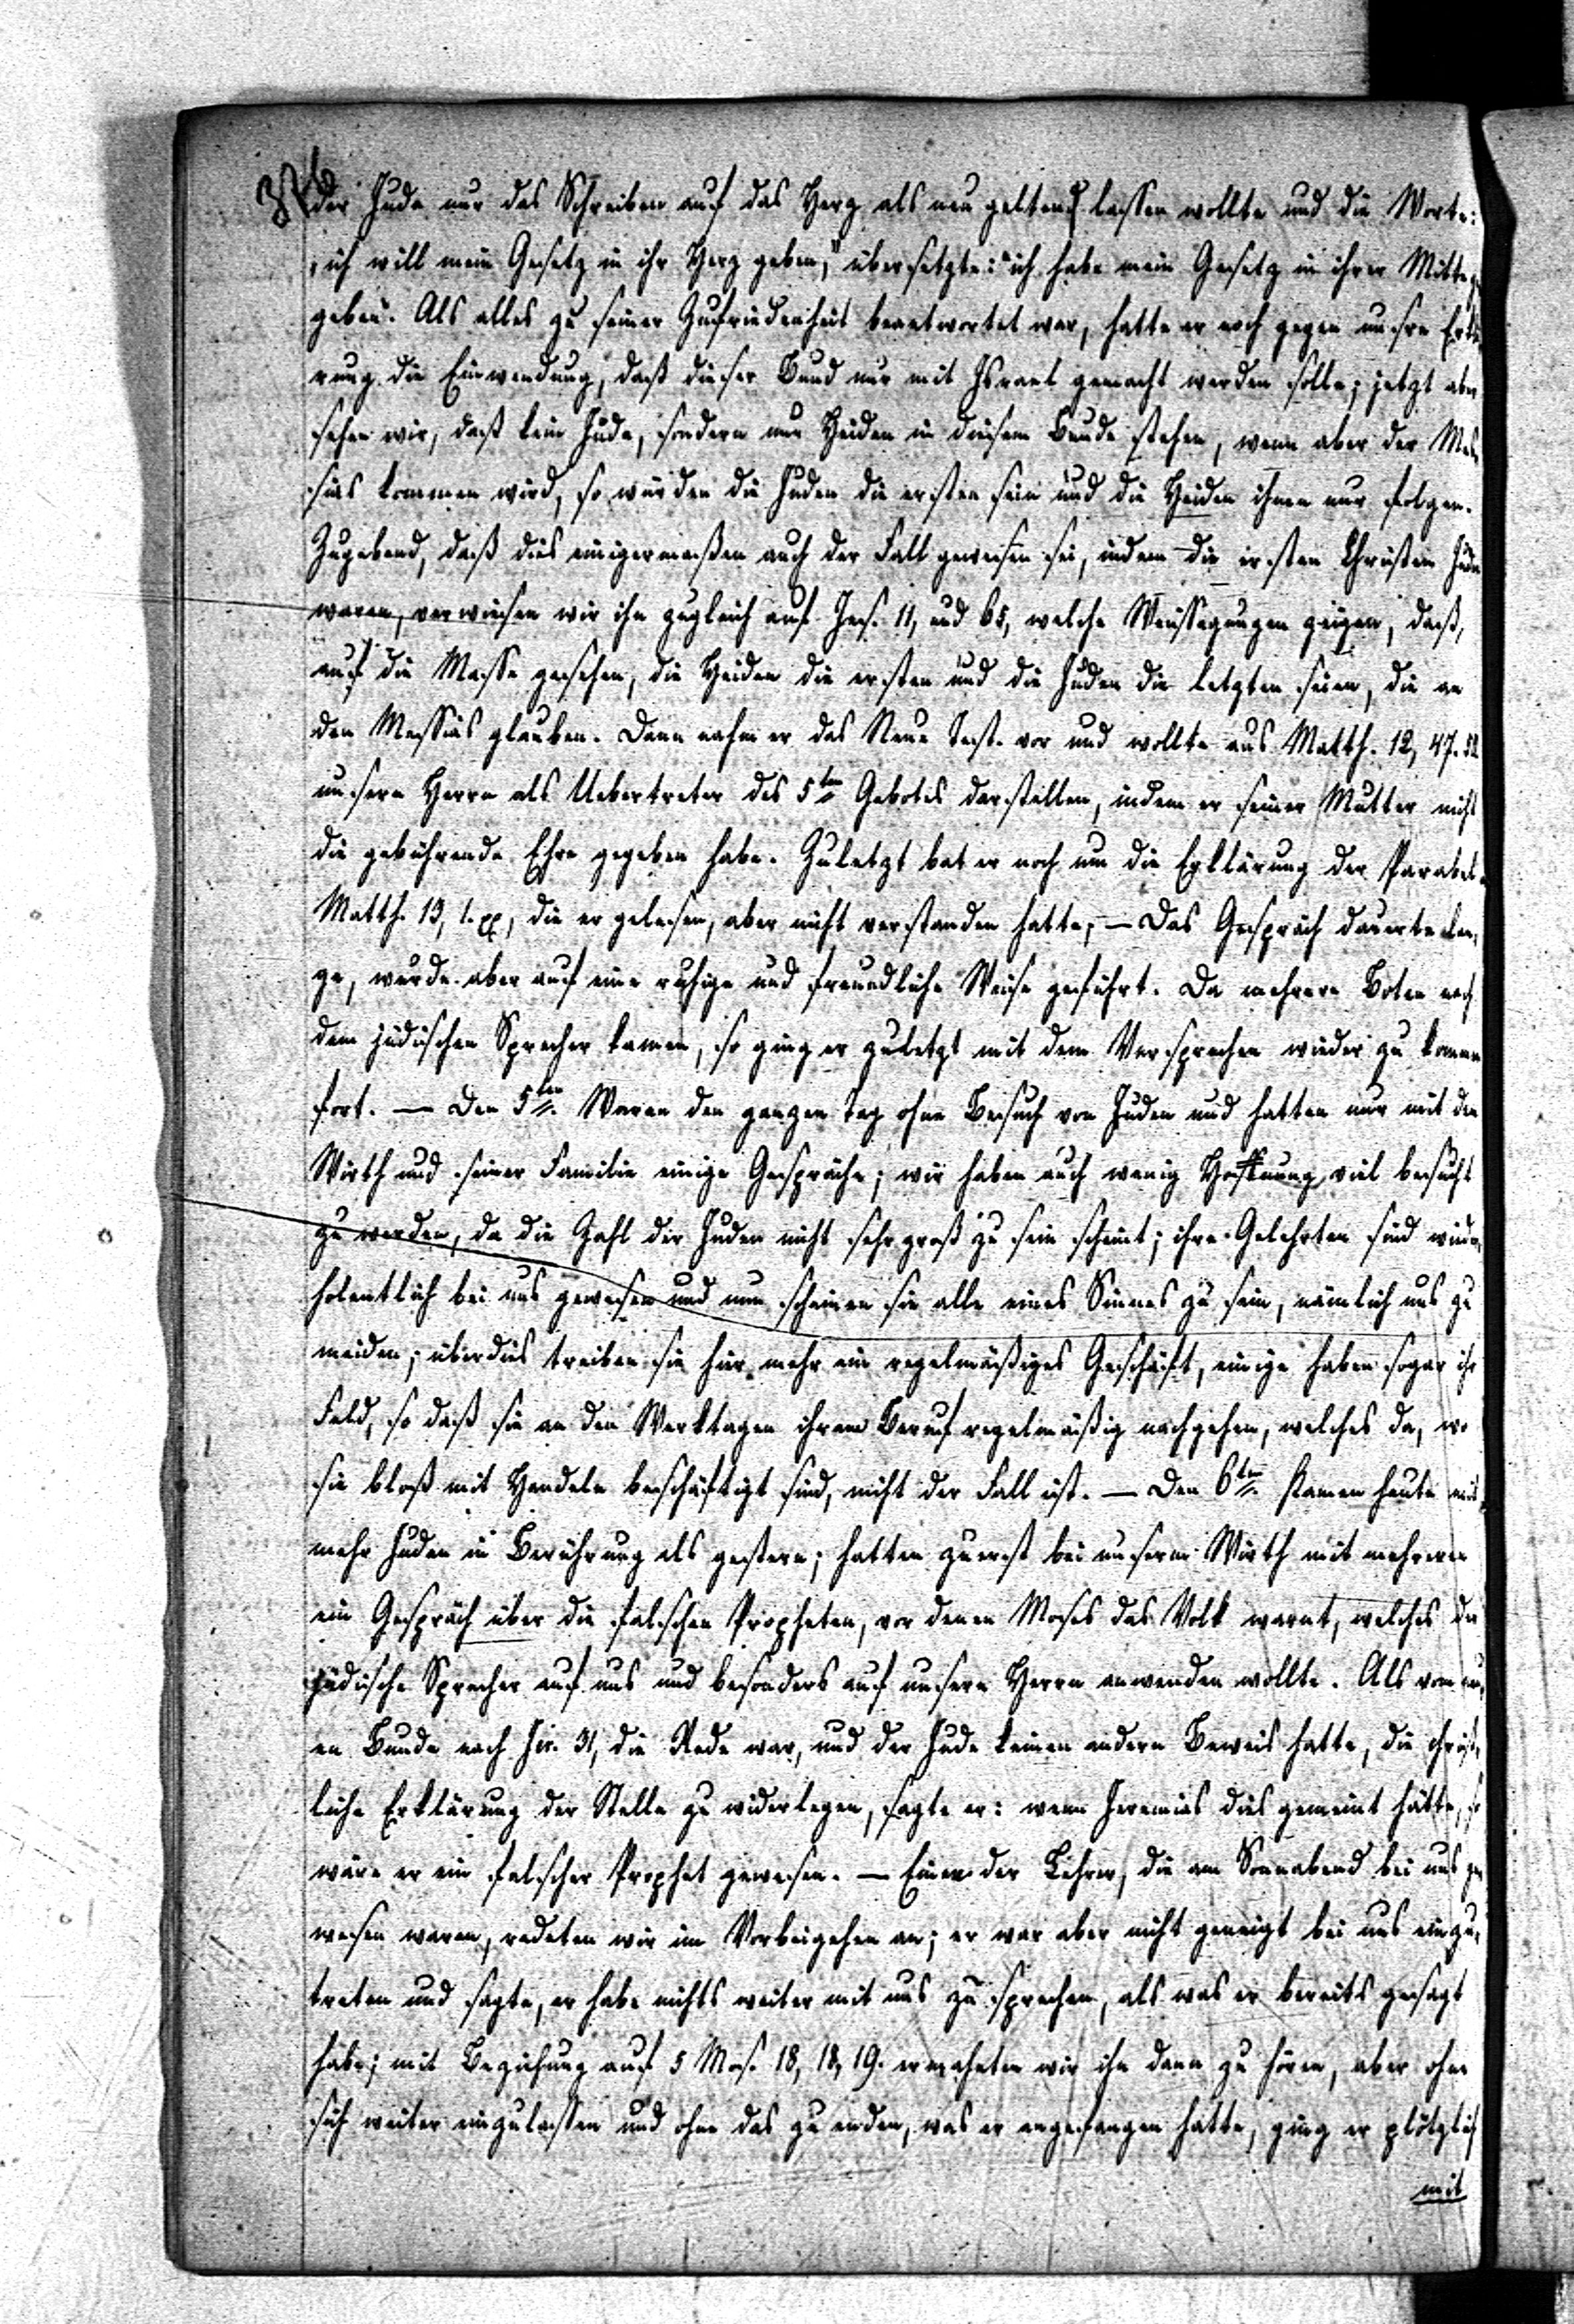 der Jude nur das Schreiben auf das Herz als neu geltend lassen wollte und die Worte:
„ich will mein Gesetz in ihr Herz geben," übersetzte: „ich habe mein Gesetz in ihrer Mitte ge
geben". Als alles zu seiner Zufriedenheit beantwortet war, hatte er noch gegen unsre Erklä
rung die Einwendung, daß dieser Bund nur mit Israel gemacht werden solle; jetzt aber
sehen wir, daß kein Jude, sondern nur Heiden in diesem Bunde stehen, wenn aber der Mes
sias kommen wird, so würden die Juden die ersten sein und die Heiden ihnen nur folgen.
Zugebend, daß dies einigermaßen auch der Fall gewesen sei, indem die ersten Christen Juden
waren, verwiesen wir ihn zugleich auf Jes. 11, und 65, welche Weissagungen zeigen, daß,
auf die Masse gesehen, die Heiden die ersten und die Juden die letzten seien, die an
den Messias glauben. Dann nahm er das Neue Test. vor und wollte aus Matth. 12, 47.
unsern Herrn als Uebertreter des 5ten Gebotes darstellen, indem er seiner Mutter nicht
die gebührende Ehre gegeben habe. Zuletzt bat er noch um die Erklärung der Parabel
Matth. 13, 1. , die er gelesen, aber nicht verstanden hatte, — Das Gespräch dauerte lan,
ge, wurde aber auf eine ruhige und freundliche Weise geführt. Da mehrere Boten nach
dem jüdischen Sprecher kamen, so ging er zuletzt mit dem Versprechen wieder zu kommen
fort. — Den 5ten. Waren den ganzen Tag ohne Besuch von Juden und hatten nur mit dem
Wirth und seiner Familie einige Gespräche; wir haben auch wenig Hoffnung, viel besucht
zu werden, da die Zahl der Juden nicht sehr groß zu sein scheint; ihre Gelehrten sind wieder,
holentlich bei uns gewesen und nun scheinen sie alle eines Sinnes zu sein, nämlich uns zu
meiden; überdies treiben sie hier mehr ein regelmäßiges Geschäft, einige haben sogar ihr
Feld, so daß sie an den Werktagen ihrem Beruf regelmäßig nachgehen, welches da, wo
sie bloß mit Handeln beschäftigt sind, nicht der Fall ist. — Den 6ten Kamen heute mit
mehr Juden in Berührung als gestern; hatten zuerst bei unserm Wirth mit mehreren
ein Gespräch über die falschen Propheten, vor denen Moses das Volk warnt, welches der
jüdische Sprecher auf uns und besonders auf unsern Herrn anwenden wollte. Als vom neu,
en Bunde nach Jer. 31, die Rede war, und der Jude keinen andern Beweis hatte, die christ,
liche Erklärung der Stelle zu widerlegen, sagte er: wenn Jeremias dies gemeint hätte, so
wäre er ein falscher Prophet gewesen. — Einen der Lehrer, die am Sonnabend bei uns ge
wesen waren, redeten wir im Vorbeigehen an; er war aber nicht geneigt bei uns einzu,
treten und sagte, er habe nichts weiter mit uns zu sprechen, als was er bereits gesagt
habe; mit Beziehung auf 5 Mos. 18, 18, 19. ermahnten wir ihn dann zu hören, aber ohne
sich weiter einzulassen und ohne das zu enden, was er angefangen hatte, ging er plötzlich
mit